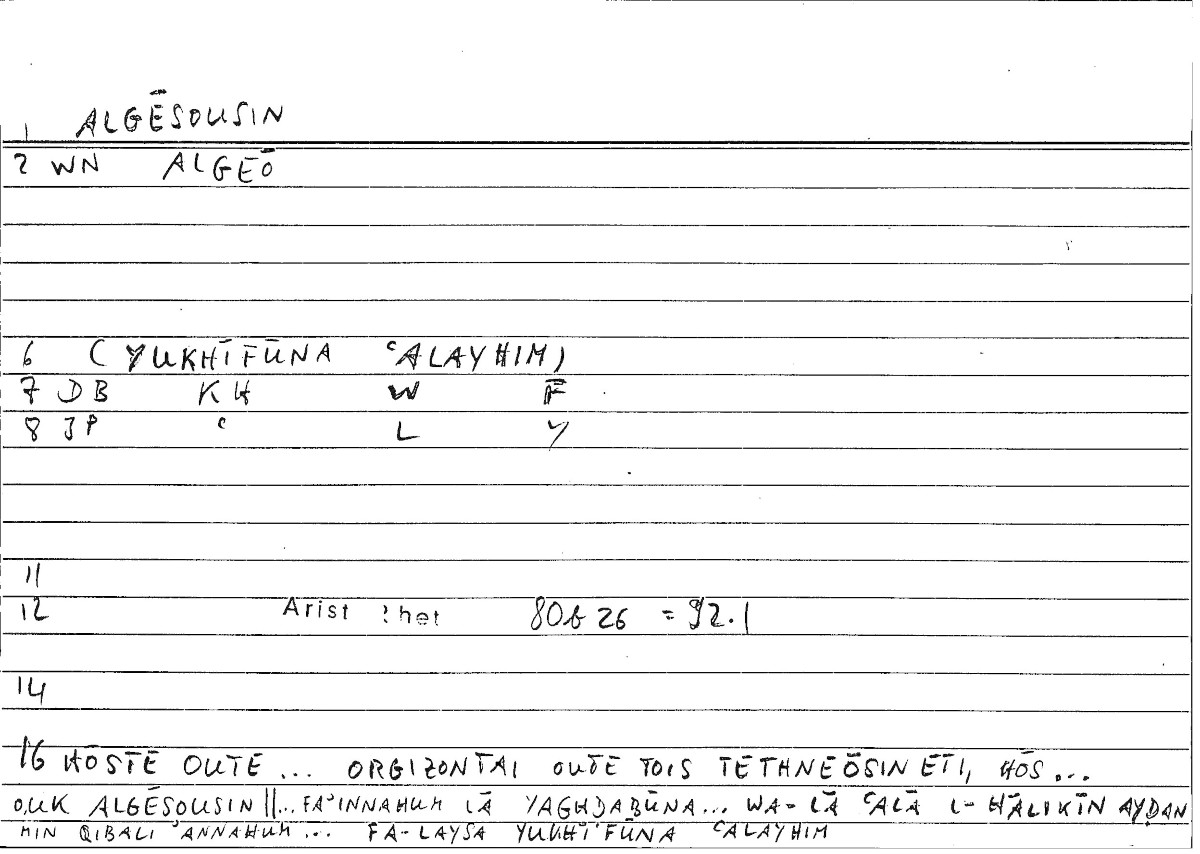 1 ALGĒSOUSIN
2 WN ALGEŌ
6 (YUKHĪFŪNA ʿALAYHIM)
7 DB KH W F
8 JP ʿ L Y
11
12 Arist Rhet 80b26 = 92.1
14
16 HŌSTE OUTE ... ORGIZONTAI OUTE TOIS TETHNEŌSIN ETI, HŌS...
OUK ALGĒSOUSIN ||... FA'INNAHUM LĀ YAGHḌABŪNA... WA-LĀ ʿALĀ L-HĀLIKĪN AYḌAN
MIN QIBALI 'ANNAHUM... FA-LAYSA YUKHĪFŪNA ʿALAYHIM